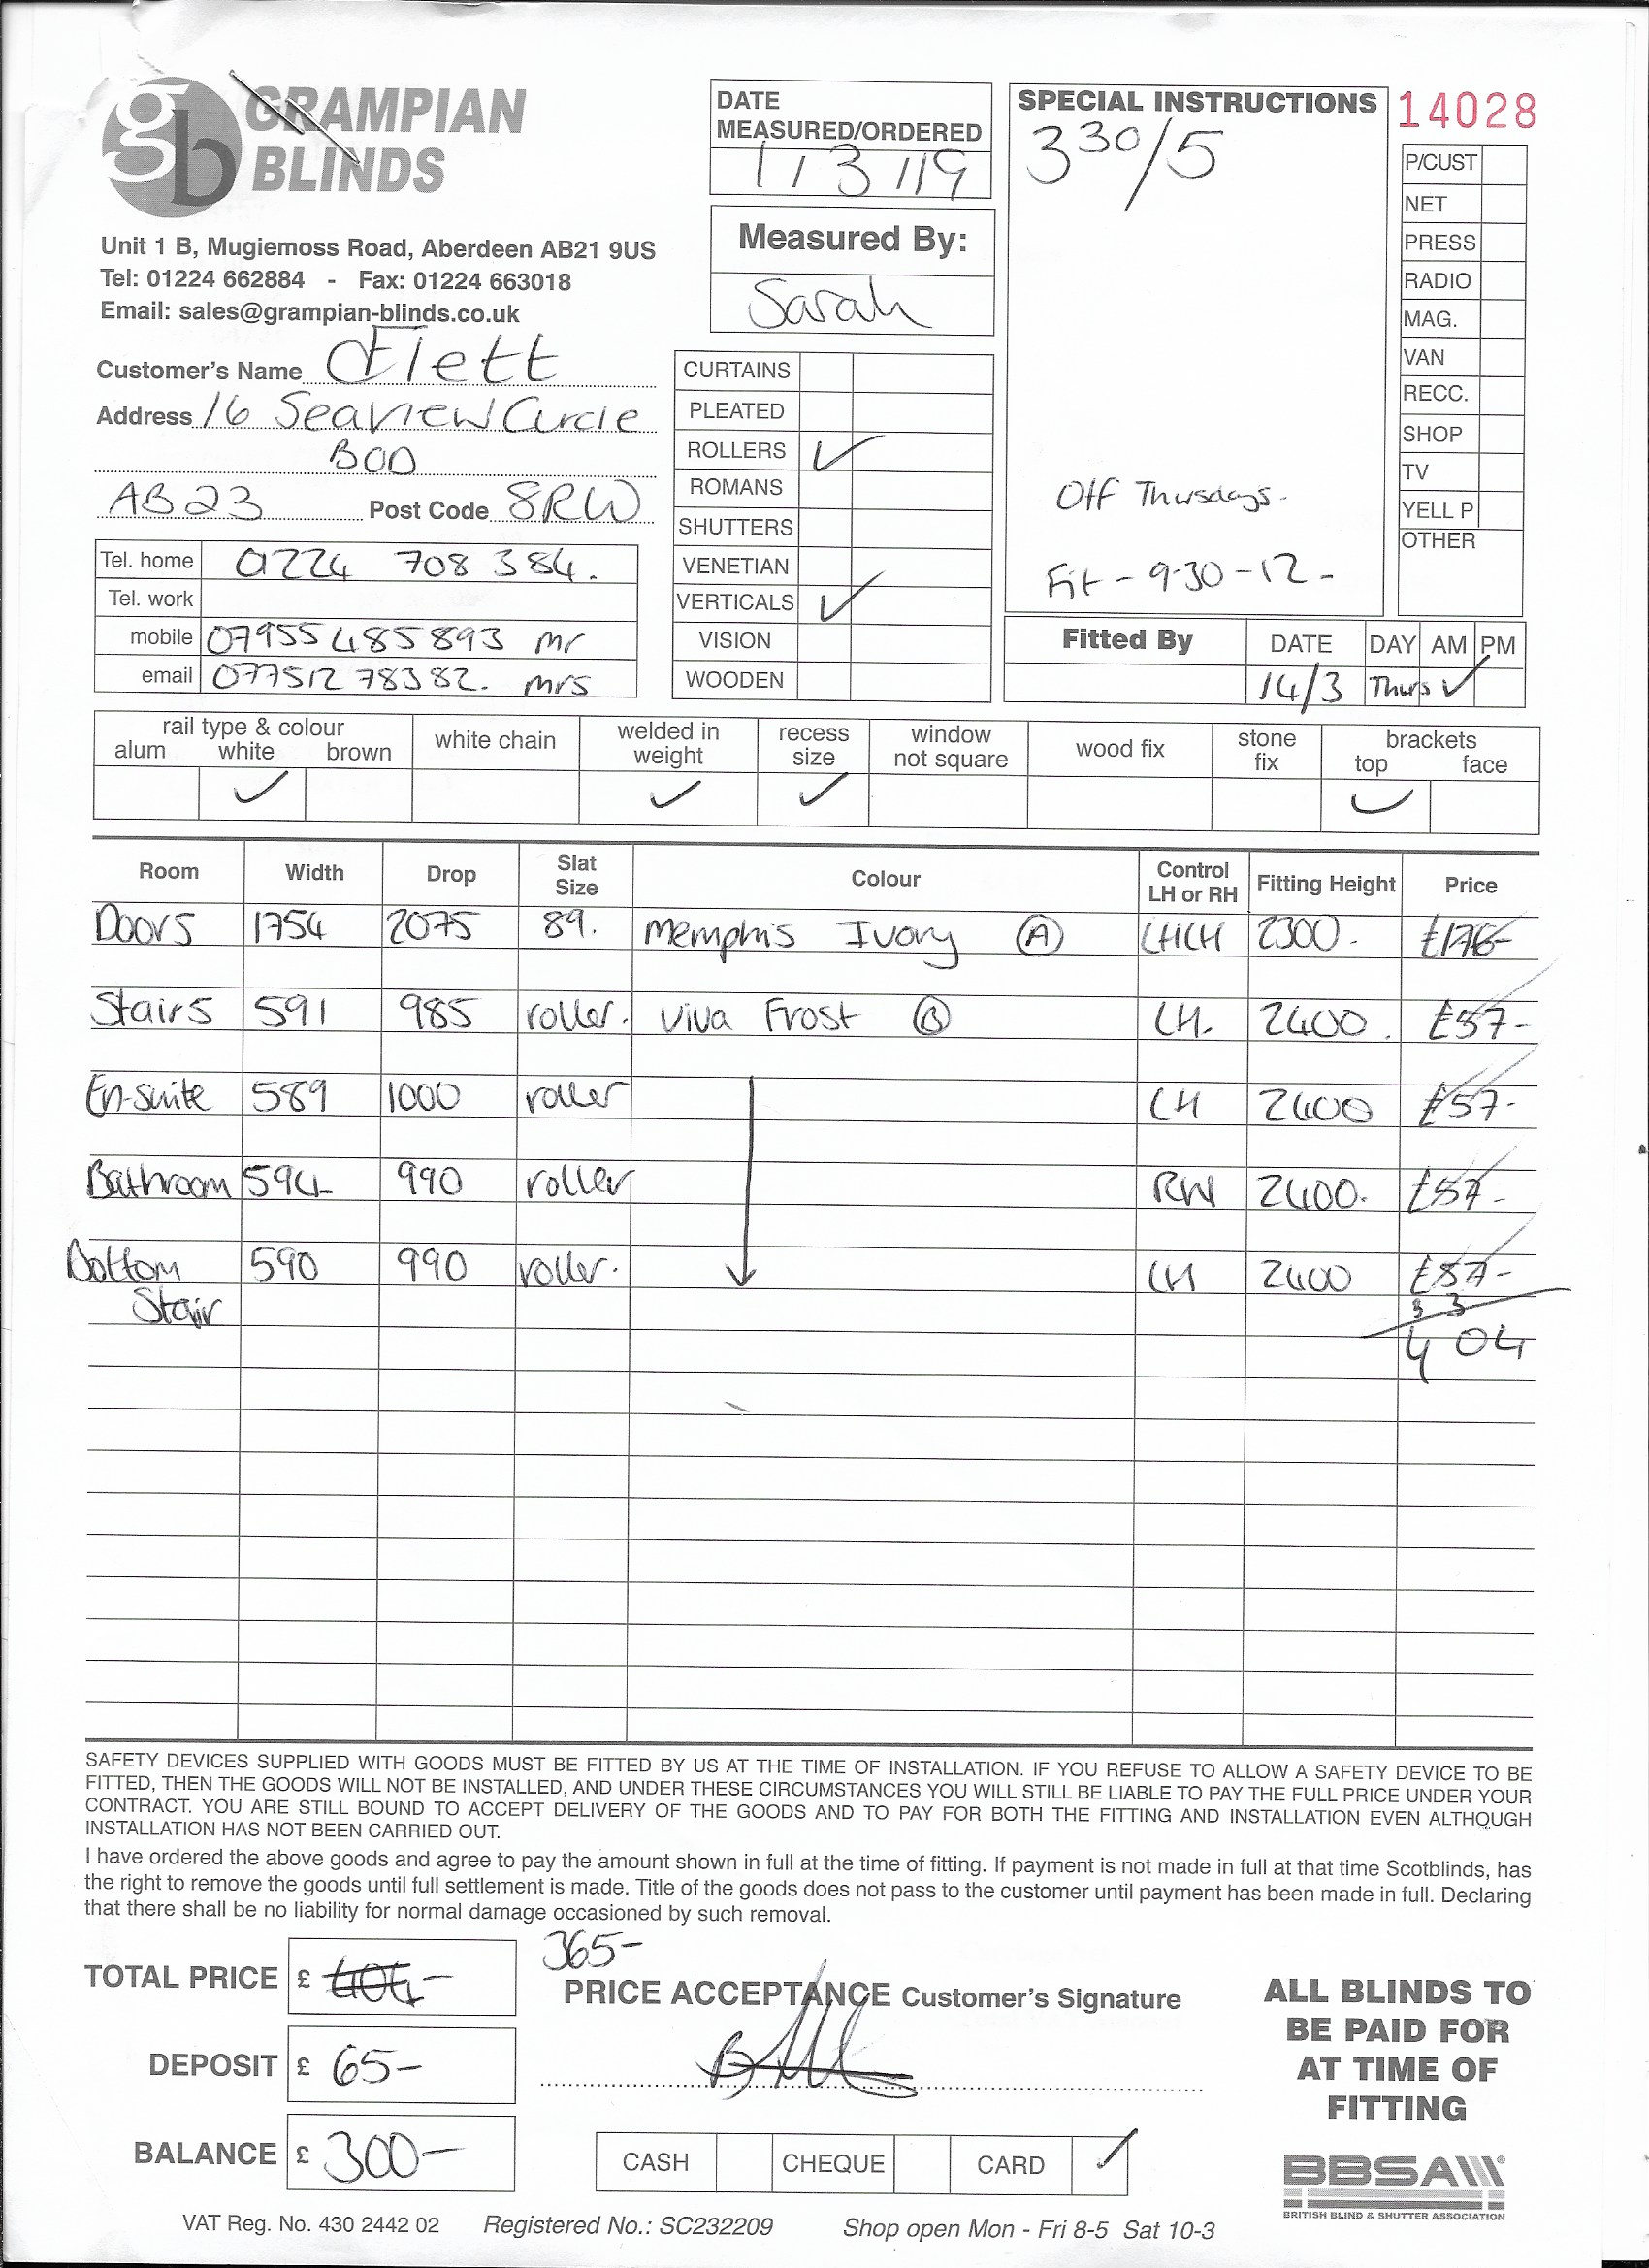 gb GRAMPIAN
BLINDS
Unit 1 B, Mugiemoss Road, Aberdeen AB21 9US
Tel: 01224 662884 - Fax: 01224 663018
Email: sales@grampian-blinds.co.uk
Customer's Name Flett
Address 16 Seaview Circle
BOD
AB23 Post Code 8RW
Tel. home 01224 708 384.
Tel. work
mobile 07955 485 893 mr
email 077512 78382. mrs
DATE
MEASURED/ORDERED
1/3/19
Measured By:
Sarah
CURTAINS
PLEATED
ROLLERS ✓
ROMANS
SHUTTERS
VENETIAN
VERTICALS ✓
VISION
WOODEN
SPECIAL INSTRUCTIONS
3 30/5
Off Thursdays.
Fit - 9.30 - 12 -
14028
P/CUST
NET
PRESS
RADIO
MAG.
VAN
RECC.
SHOP
TV
YELL P
OTHER
Fitted By DATE DAY AM PM
14/3 Thurs ✓
rail type & colour white chain welded in weight recess size window not square wood fix stone fix brackets
alum white brown top face
✓ ✓ ✓ ✓
Room Width Drop Slat Size Colour Control LH or RH Fitting Height Price
Doors 1754 2075 89. Memphis Ivory (A) LHLH 2300. £176-
Stairs 591 985 roller. Viva Frost (B) LH. 2400. £57-
En-suite 589 1000 roller LH 2400 £57-
Bathroom 594 990 roller 2400. £57-
Bottom 590 990 roller. LH 2400 £57-
Stair 3 3
404
SAFETY DEVICES SUPPLIED WITH GOODS MUST BE FITTED BY US AT THE TIME OF INSTALLATION. IF YOU REFUSE TO ALLOW A SAFETY DEVICE TO BE
FITTED, THEN THE GOODS WILL NOT BE INSTALLED, AND UNDER THESE CIRCUMSTANCES YOU WILL STILL BE LIABLE TO PAY THE FULL PRICE UNDER YOUR
CONTRACT. YOU ARE STILL BOUND TO ACCEPT DELIVERY OF THE GOODS AND TO PAY FOR BOTH THE FITTING AND INSTALLATION EVEN ALTHOUGH
INSTALLATION HAS NOT BEEN CARRIED OUT.
I have ordered the above goods and agree to pay the amount shown in full at the time of fitting. If payment is not made in full at that time Scotblinds, has
the right to remove the goods until full settlement is made. Title of the goods does not pass to the customer until payment has been made in full. Declaring
that there shall be no liability for normal damage occasioned by such removal.
365-
TOTAL PRICE £ 404-
PRICE ACCEPTANCE Customer's Signature
DEPOSIT £ 65-
BALANCE £ 300-
CASH CHEQUE CARD ✓
ALL BLINDS TO
BE PAID FOR
AT TIME OF
FITTING
BBSA
BRITISH BLIND & SHUTTER ASSOCIATION
VAT Reg. No. 430 2442 02 Registered No.: SC232209 Shop open Mon - Fri 8-5 Sat 10-3